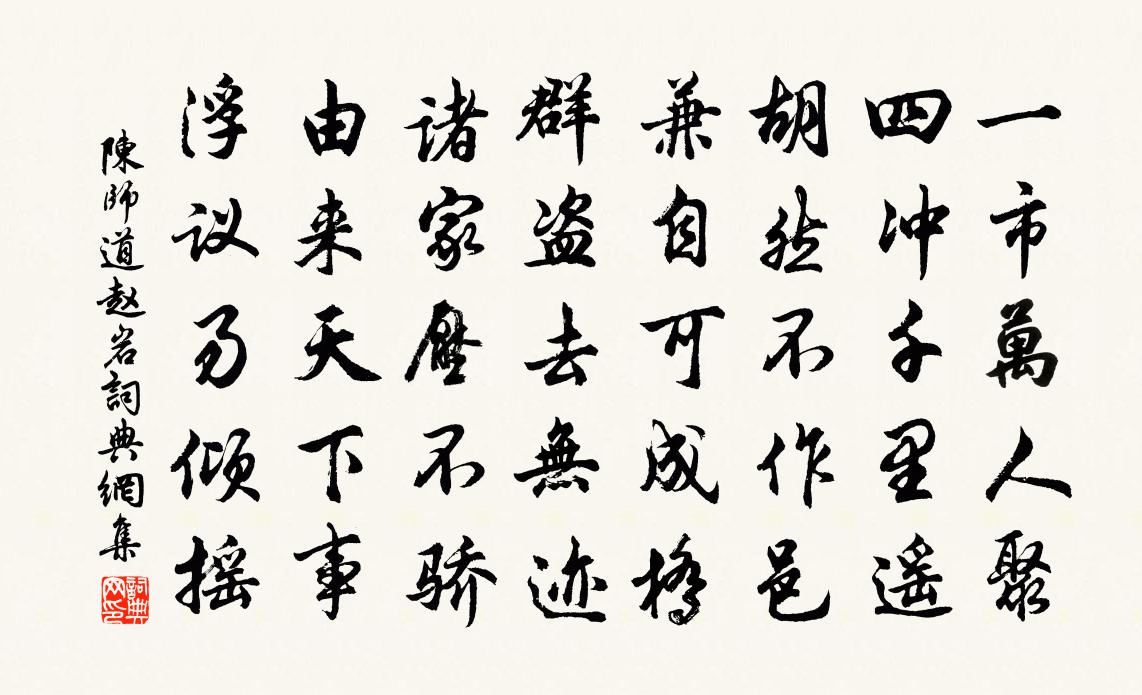 一市萬人聚
四冲千里遥
胡然不作邑
兼自可成橋
群盗去無迹
诸家壓不骄
由来天下事
浮议易倾摇
陳師道趙岩詞典網集
詞典网印